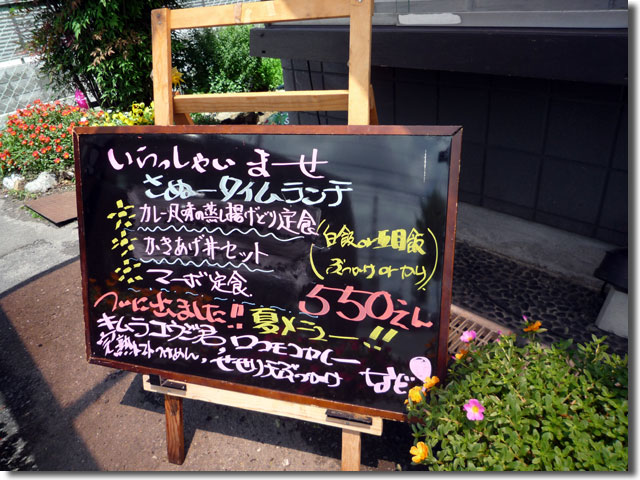 いらっしゃいまーせ
さぬータイムランチ
カレー風味の蒸し揚げどり定食
かきあげ丼セット
マーボ定食
(白飯or五目飯
ぶっかけorかけ)
550えん
ついに出ました!! 夏メニュー!!
キムラユウジ君, ロコモコカレー
完熟トマトつけめん, せせり天ぶっかけ など